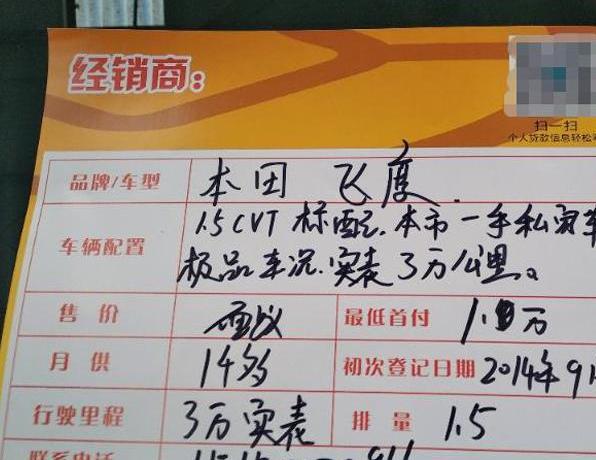 经销商：
扫一扫
个人贷款信息轻松
品牌/车型 本田 飞度.
车辆配置 1.5CVT 标配.本市一手私家车
极品车况.实表3万公里。
售价 面议 最低首付 1. 万
月供 14多 初次登记日期 2014年9
行驶里程 3万实表 排量 1.5
联系电话